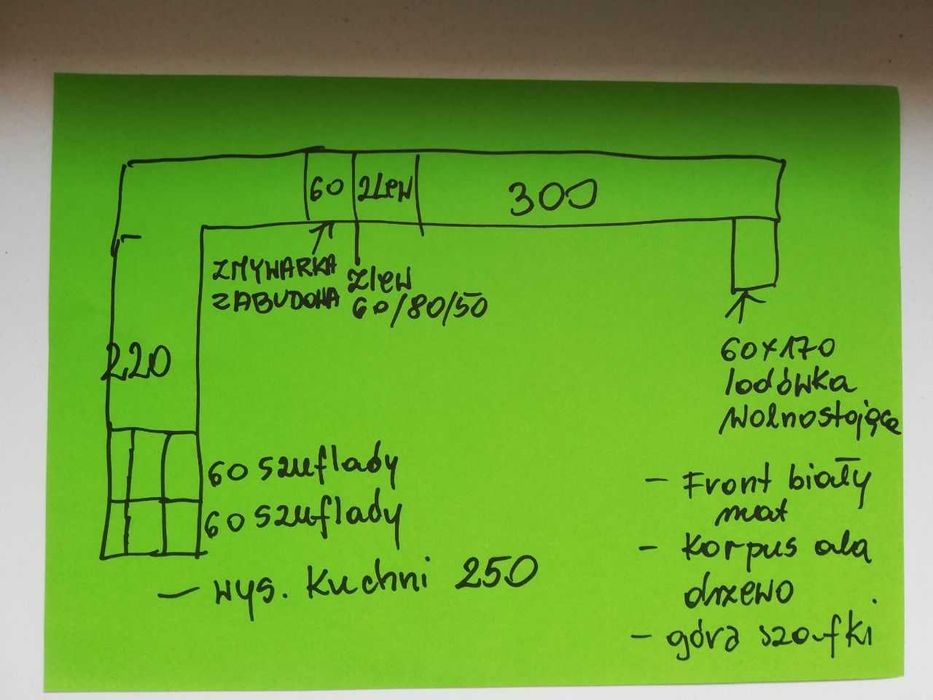 60 ZLEW 300
ZMYWARKA
ZABUDOWA
ZLEW
60/80/50
220
60x170
lodówka
wolnostojące
60 szuflady
60 szuflady
- wys. Kuchni 250
- Front biały
mat
- Korpus ala
drzewo
- góra szafki